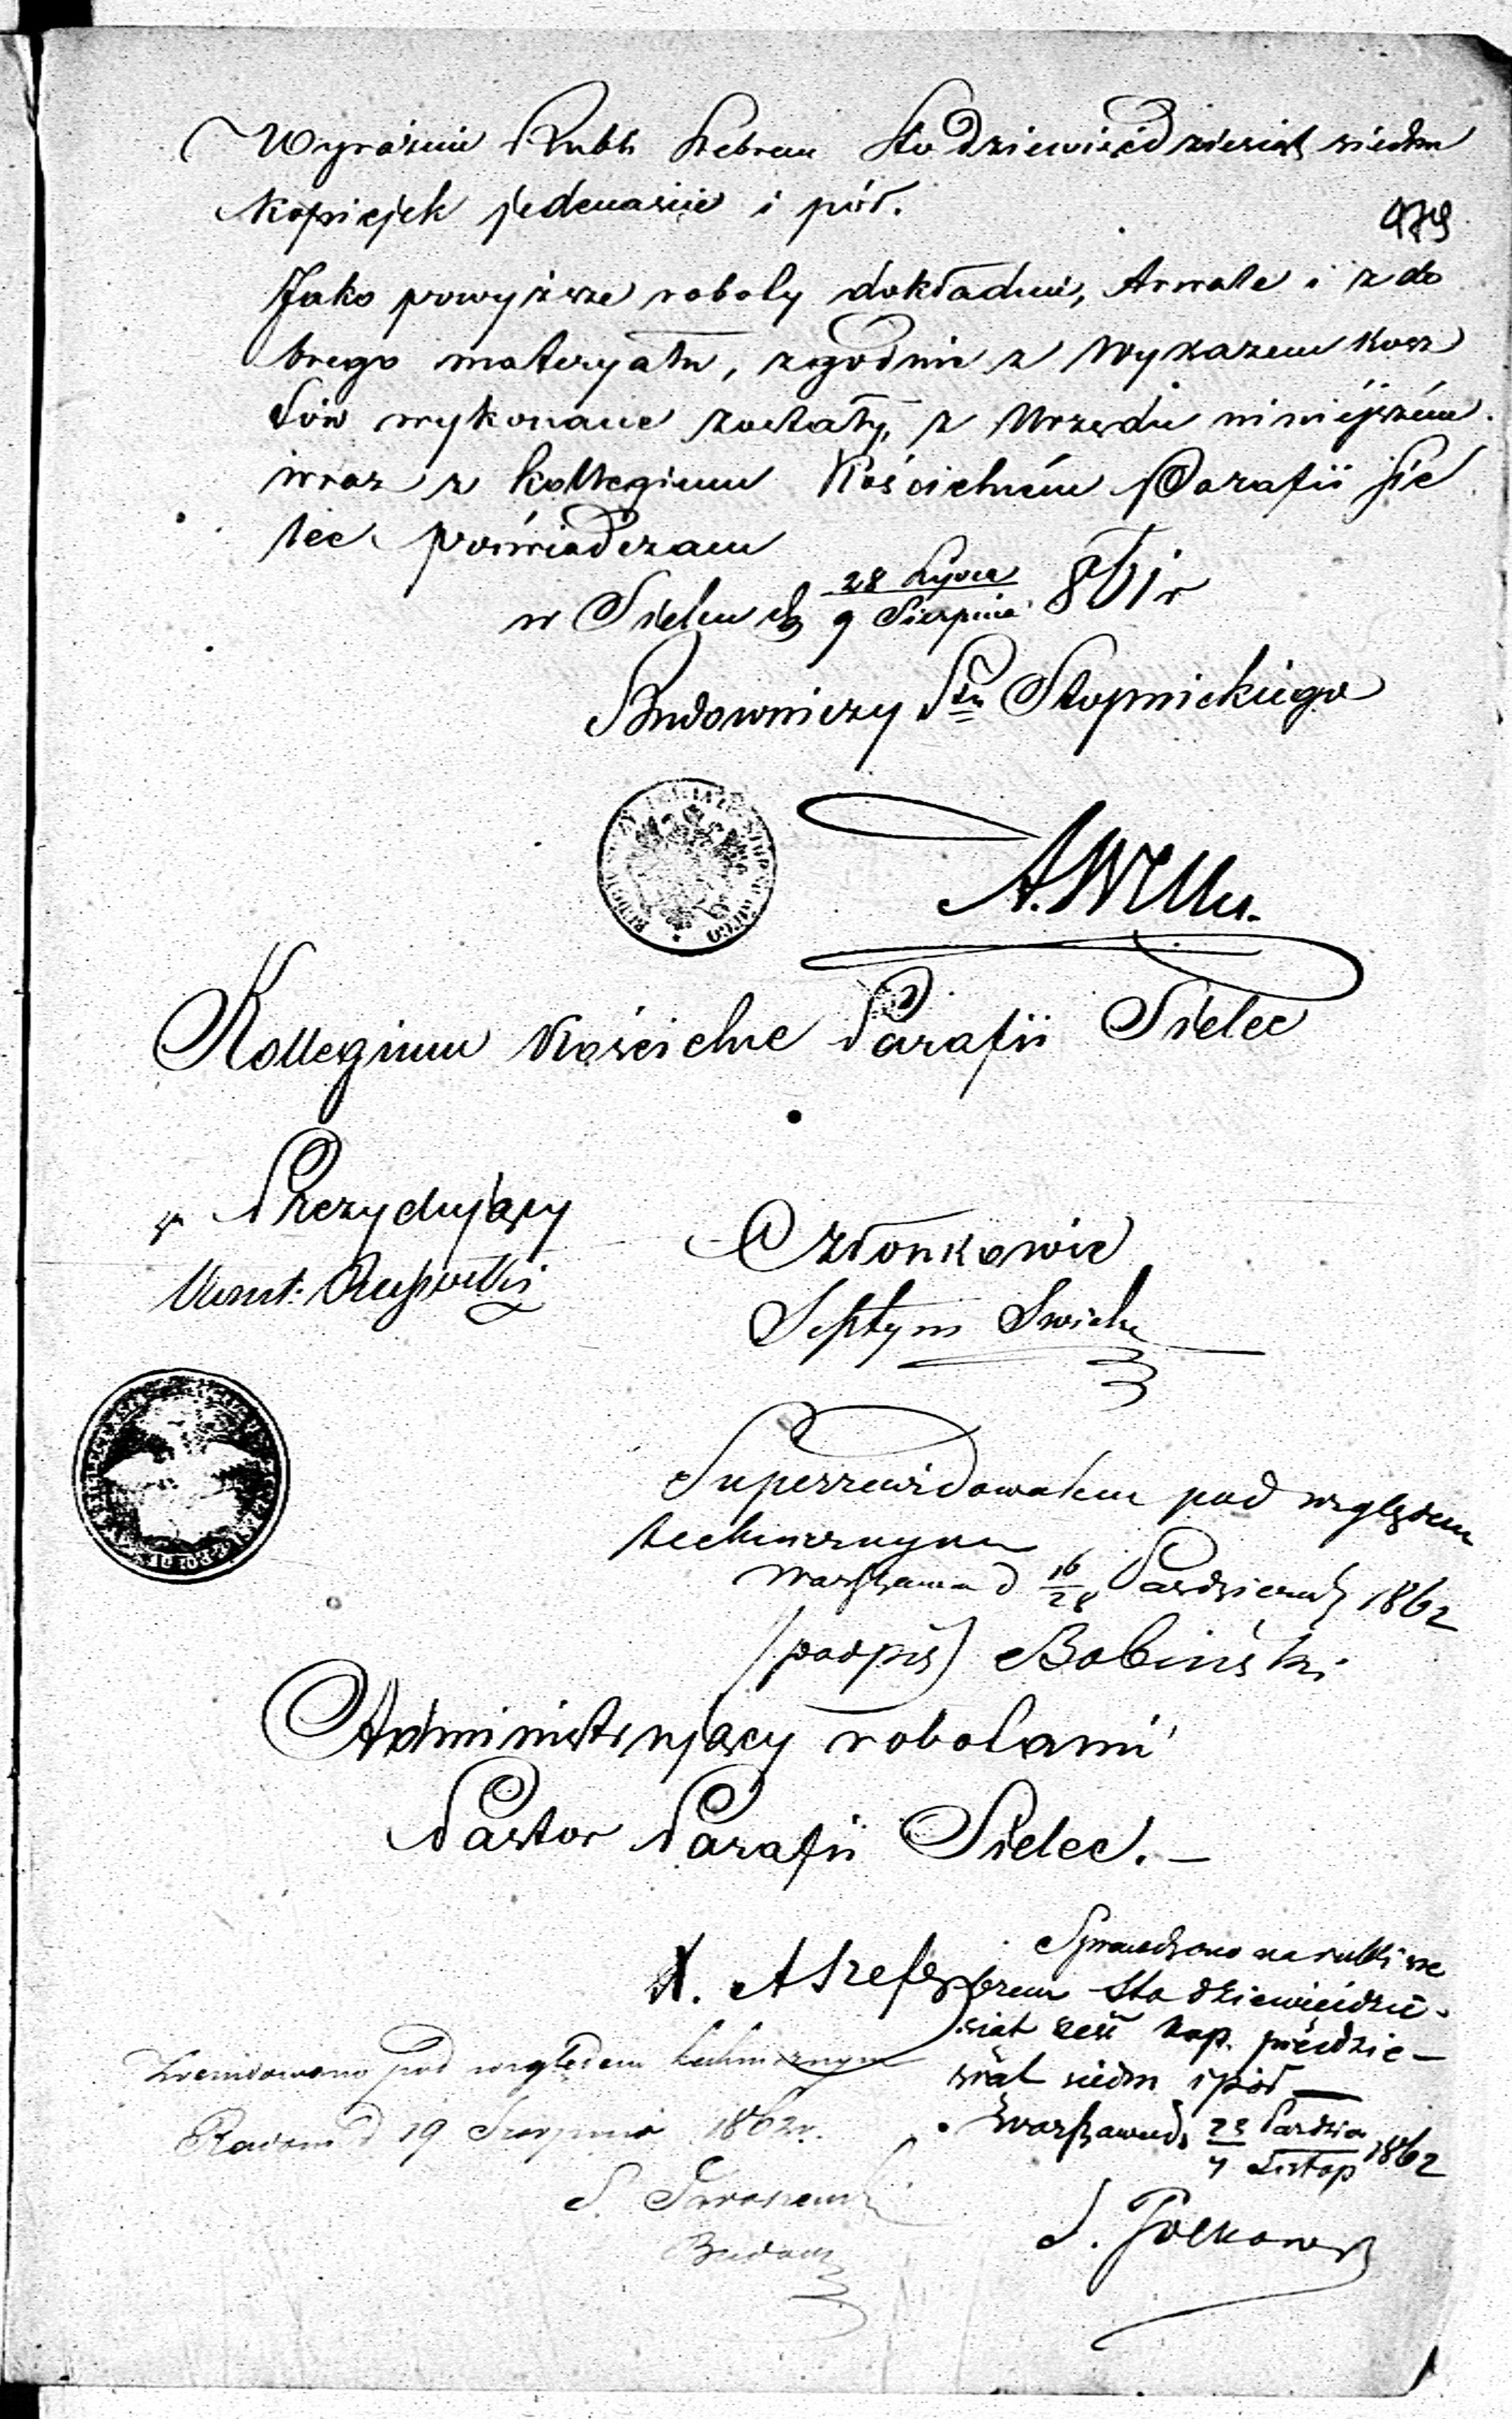 Wyraźnie Rubli Srebrem Sto Dziewięćdziesiąt siedm
Kopiejek jedenaście i pół.
479
Jako powyższe roboty dokładnie, trwale i z do
brego materyału, zgodnie z Wykazem kosz
tów wykonane zostały, z Urzędu niniejszém
wraz z kollegium Kościelném Parafii Sie
lec poświadczam
w Sielcu d. 28 Lipca / 9 Sierpnia 861 r
Budowniczy Ptu Stopnickiego
A.
Kollegium Kościelne Parafii Sielec
Prezydujący
Członkowie
Septym
Superrewidowałem pod względem
technicznym
Warszawa d 16/28 Październ 1862
(podpis) Bobiński
Administrujący robotami
Pastor Parafii Sielec. —
X. A
Sprawdzono na rubli sre
brem sto dziewięćdzie-
siąt sześć kop. pięćdzie—
siąt siedm i pół —
Warszawa d. 23 Paździer / 4 Listop 1862
Zrewidowano pod względem technicznym
Radom d 19 Sierpnia 1862 r.
S.
Budow
J.